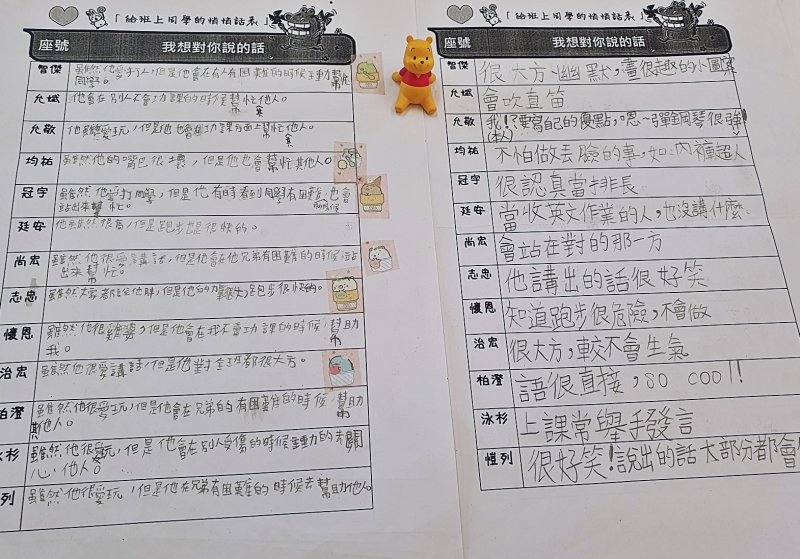 「給班上同學的悄悄話表」
座號 我想對你說的話
智傑 雖然他愛打人,但是他會在有人有困難的時候主動幫忙
同學。
允斌 他會在別人不會功課的時候去幫忙他人。
允敬 他雖然愛玩,但是他也會在功課方面去幫忙他人。
均祐 雖然他的嘴巴很壞,但是他也會幫忙其他人。
冠宇 雖然他愛打同學,但是他有時看到同學有困難,也會
站出來幫忙。
廷安 他雖然很高,但是跑步也是很快的。
尚宏 雖然他很愛講話,但是他會在他兄弟有困難的時候站
出來幫忙。
志忠 雖然大家都說他胖,但是他的跑步很快的。
懷恩 雖然他很雞婆,但是他會在我不會功課的時候,幫助
我。
治宏 雖然他很愛講話,但是他對全班都很大方。
柏澄 雖然他很愛玩,但是他會在兄弟的有困難的時候,幫助
其他人。
泳杉 雖然他很愛玩,但是他會在別人受傷的時候主動的去關
心他人。
列 雖然他很愛玩,但是他在兄弟有困難的時候去幫助他人。
「給班上同學的悄悄話表」
座號 我想對你說的話
智傑 很大方,幽默,畫很趣的小圖案
允斌 會吹直笛
允敬 我!?要寫自己的優點,嗯~彈鋼琴很強
(本人)
均祐 不怕做丟臉的事,如:內褲超人
冠宇 很認真當排長
廷安 當收英文作業的人,也沒講什麼
尚宏 會站在對的那一方
志忠 他講出的話很好笑
懷恩 知道跑步很危險,不會做
治宏 很大方,較不會生氣
柏澄 語很直接,so cool!
泳杉 上課常舉手發言
愷列 很好笑!說出的話大部分都會